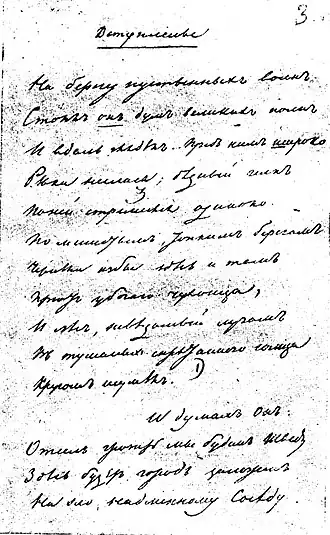 3
Вступленье
На берегу пустынныхъ волнъ
Стоялъ онъ думъ великихъ полнъ
И вдаль глядѣлъ. Предъ нимъ широко
Рѣка неслася; бѣдный челнъ
По ней стремился одиноко.
По мшистымъ, топкимъ берегамъ
Чернѣли избы здѣсь и тамъ
Пріютъ убогаго чухонца;
И лѣсъ, невѣдомый лучамъ
Въ туманѣ спрятаннаго солнца
Кругомъ шумѣлъ. 1)
И думалъ Онъ:
Отсель грозить мы будемъ Шведу
Здѣсь будетъ городъ заложенъ
На зло надменному Сосѣду.